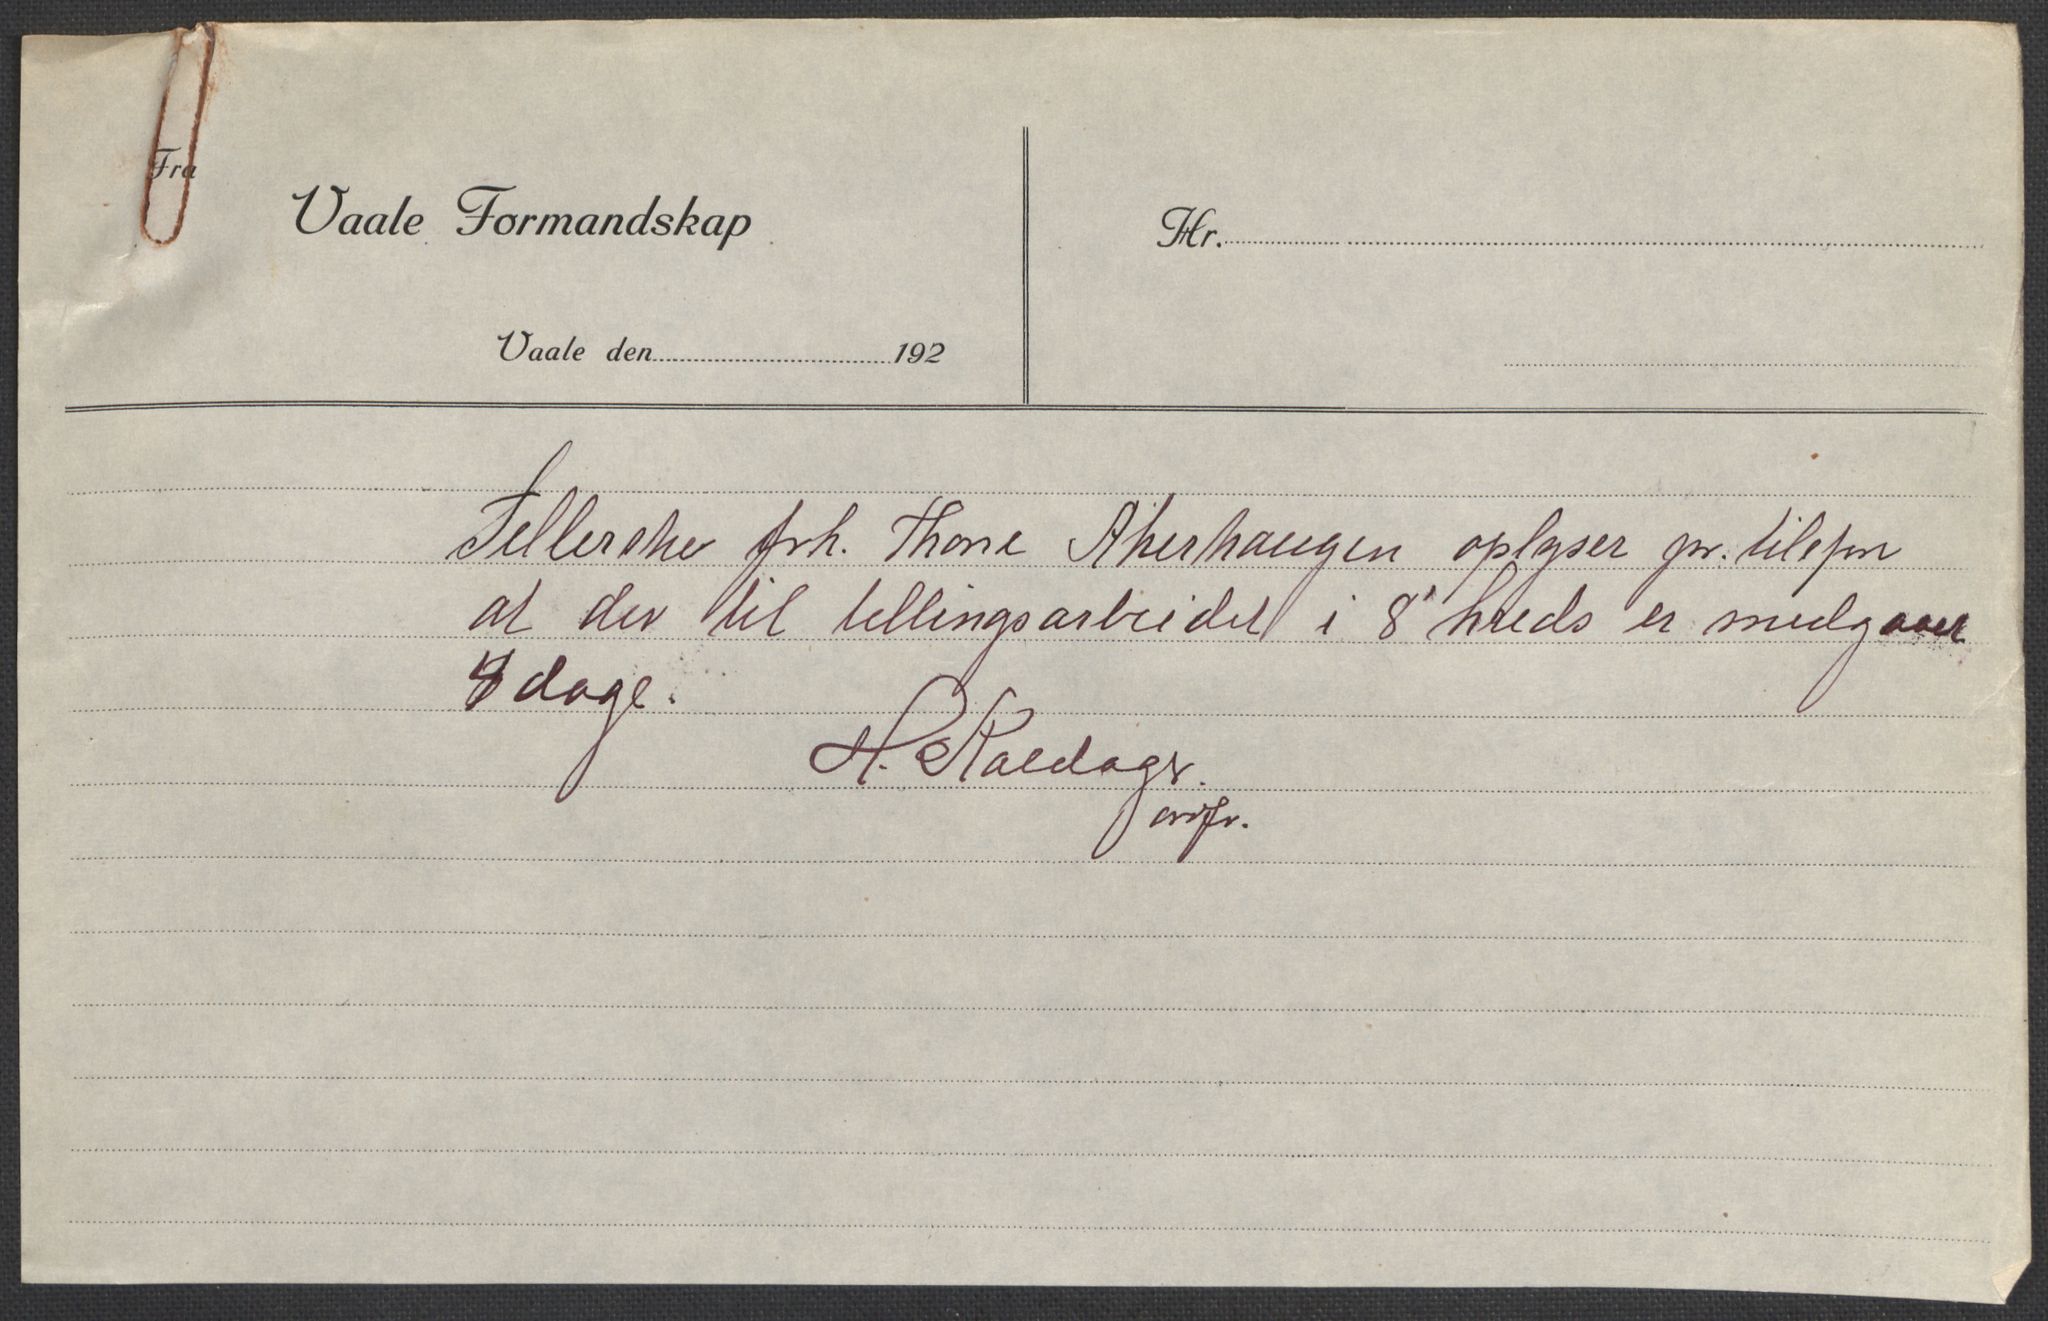 Fra
Vaale Formandskap
Hr.
Vaale den 192
Tellerske frk. Thora Akerhaugen oplyser pr. telefon
at der til tellingsarbeidet i 8' kreds er medgaaet
8 dage.
H.
ordf.